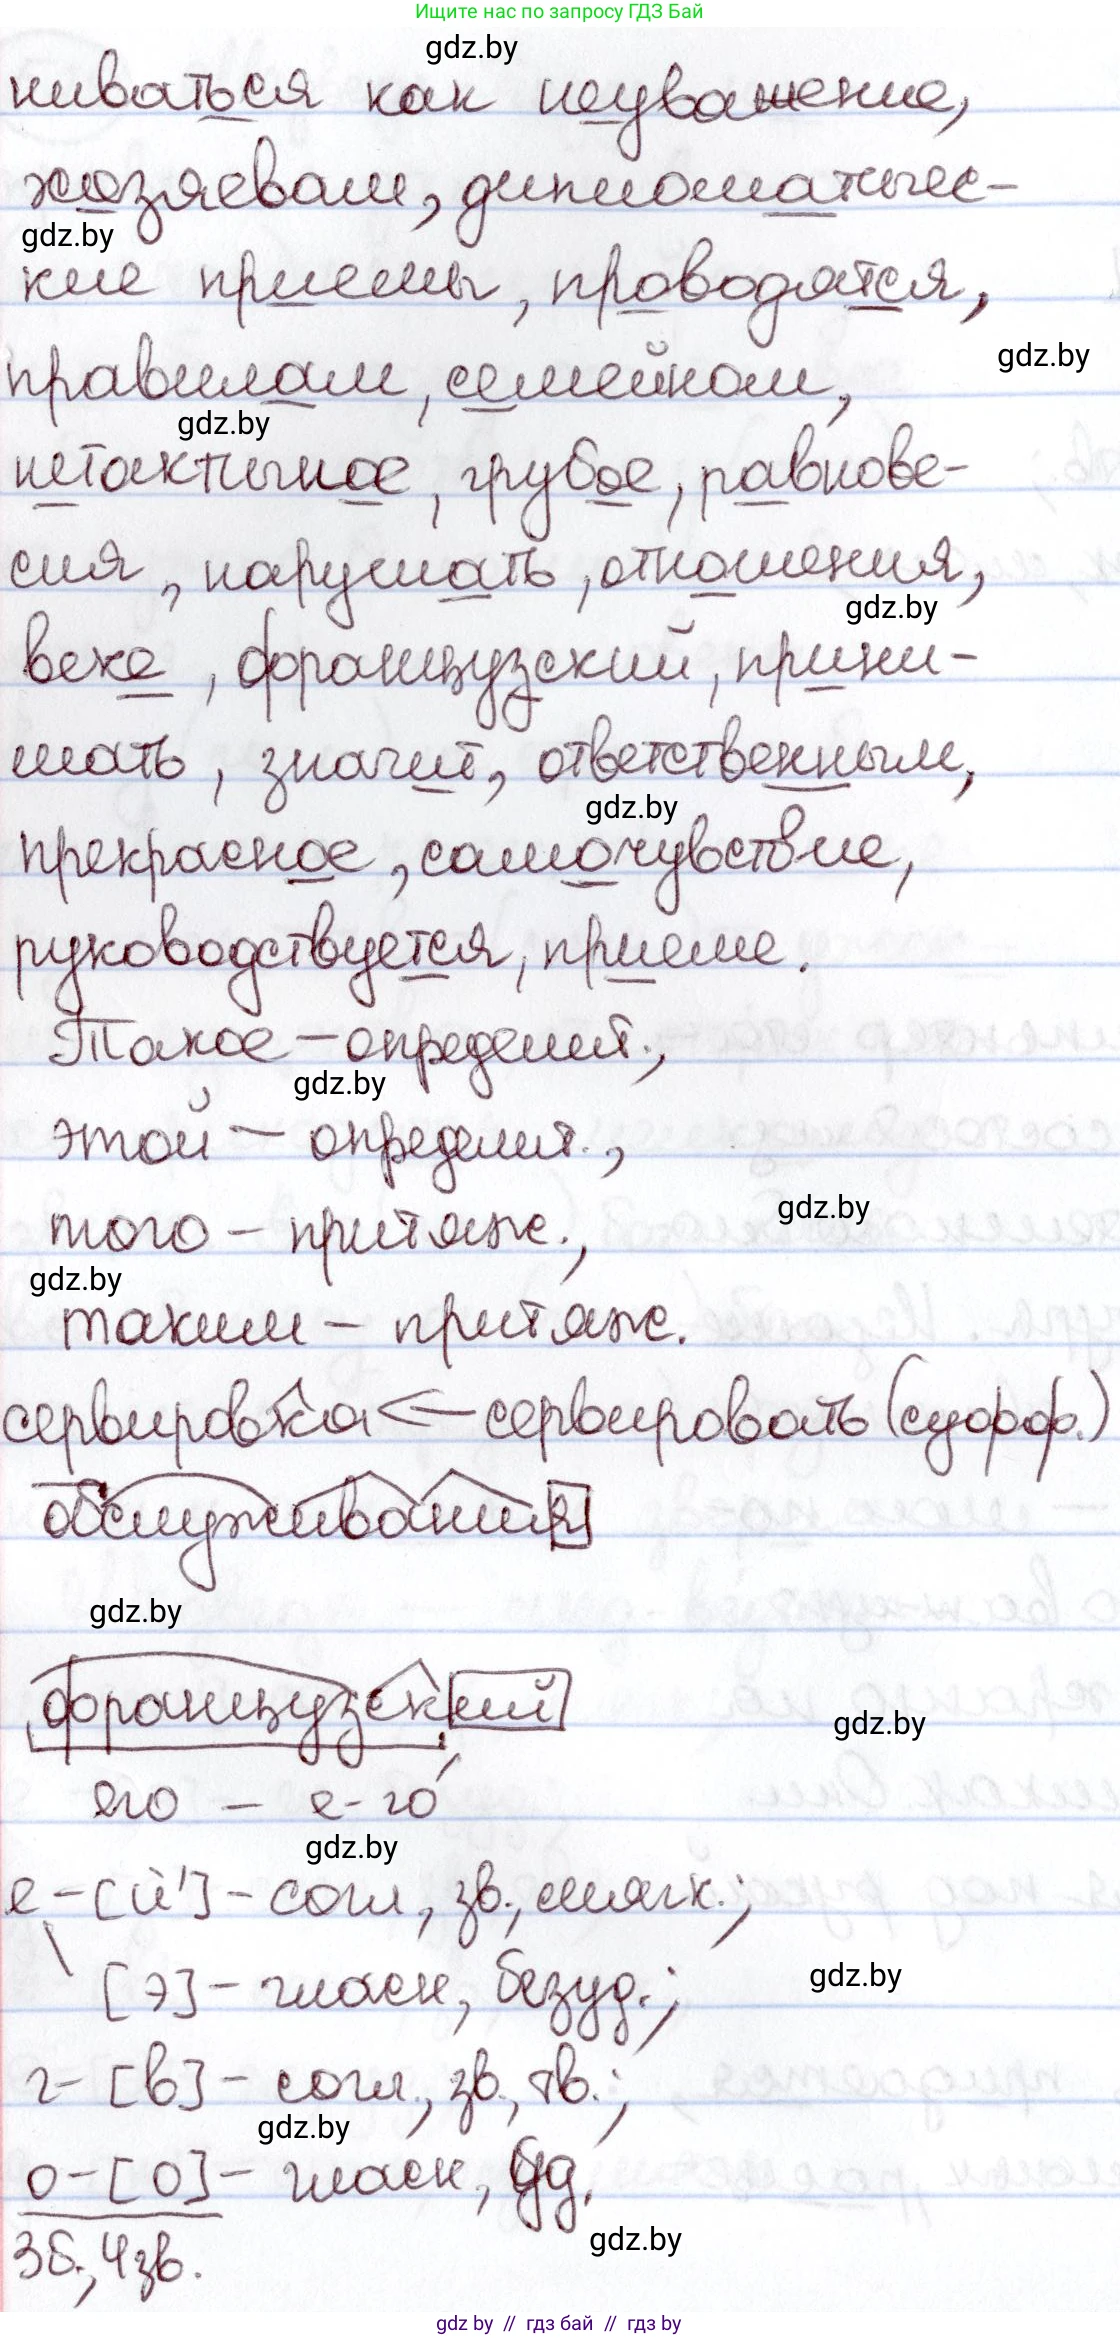 Ищите нас по запросу ГДЗ Бай
gdz.by
ниваться как неуважение,
хозяевам, дипломатичес-
gdz.by
кие приемы, проводятся,
gdz.by
правилам, семейном,
gdz.by
нетактичное, грубое, равнове-
сия, нарушать, отношения,
gdz.by
веке, французский, прини-
мать, значит, ответственным,
gdz.by
прекрасное, самочувствие,
руководствуется, приеме.
Такое – определит.,
gdz.by
этой – определит.,
gdz.by
того – притяж.,
gdz.by
таким – притяж.
сервировка ← сервировать (суфф.)
обслуживания
gdz.by
французский
gdz.by
его – е-го́
gdz.by
е – [й'] – согл, зв., мягк.;
\ [э] – гласн, безуд.;
gdz.by
г – [в] – согл., зв., тв.;
gdz.by
о – [о] – гласн, уд.
gdz.by
3б., 4зв.
gdz by // гдз бай // гдз by